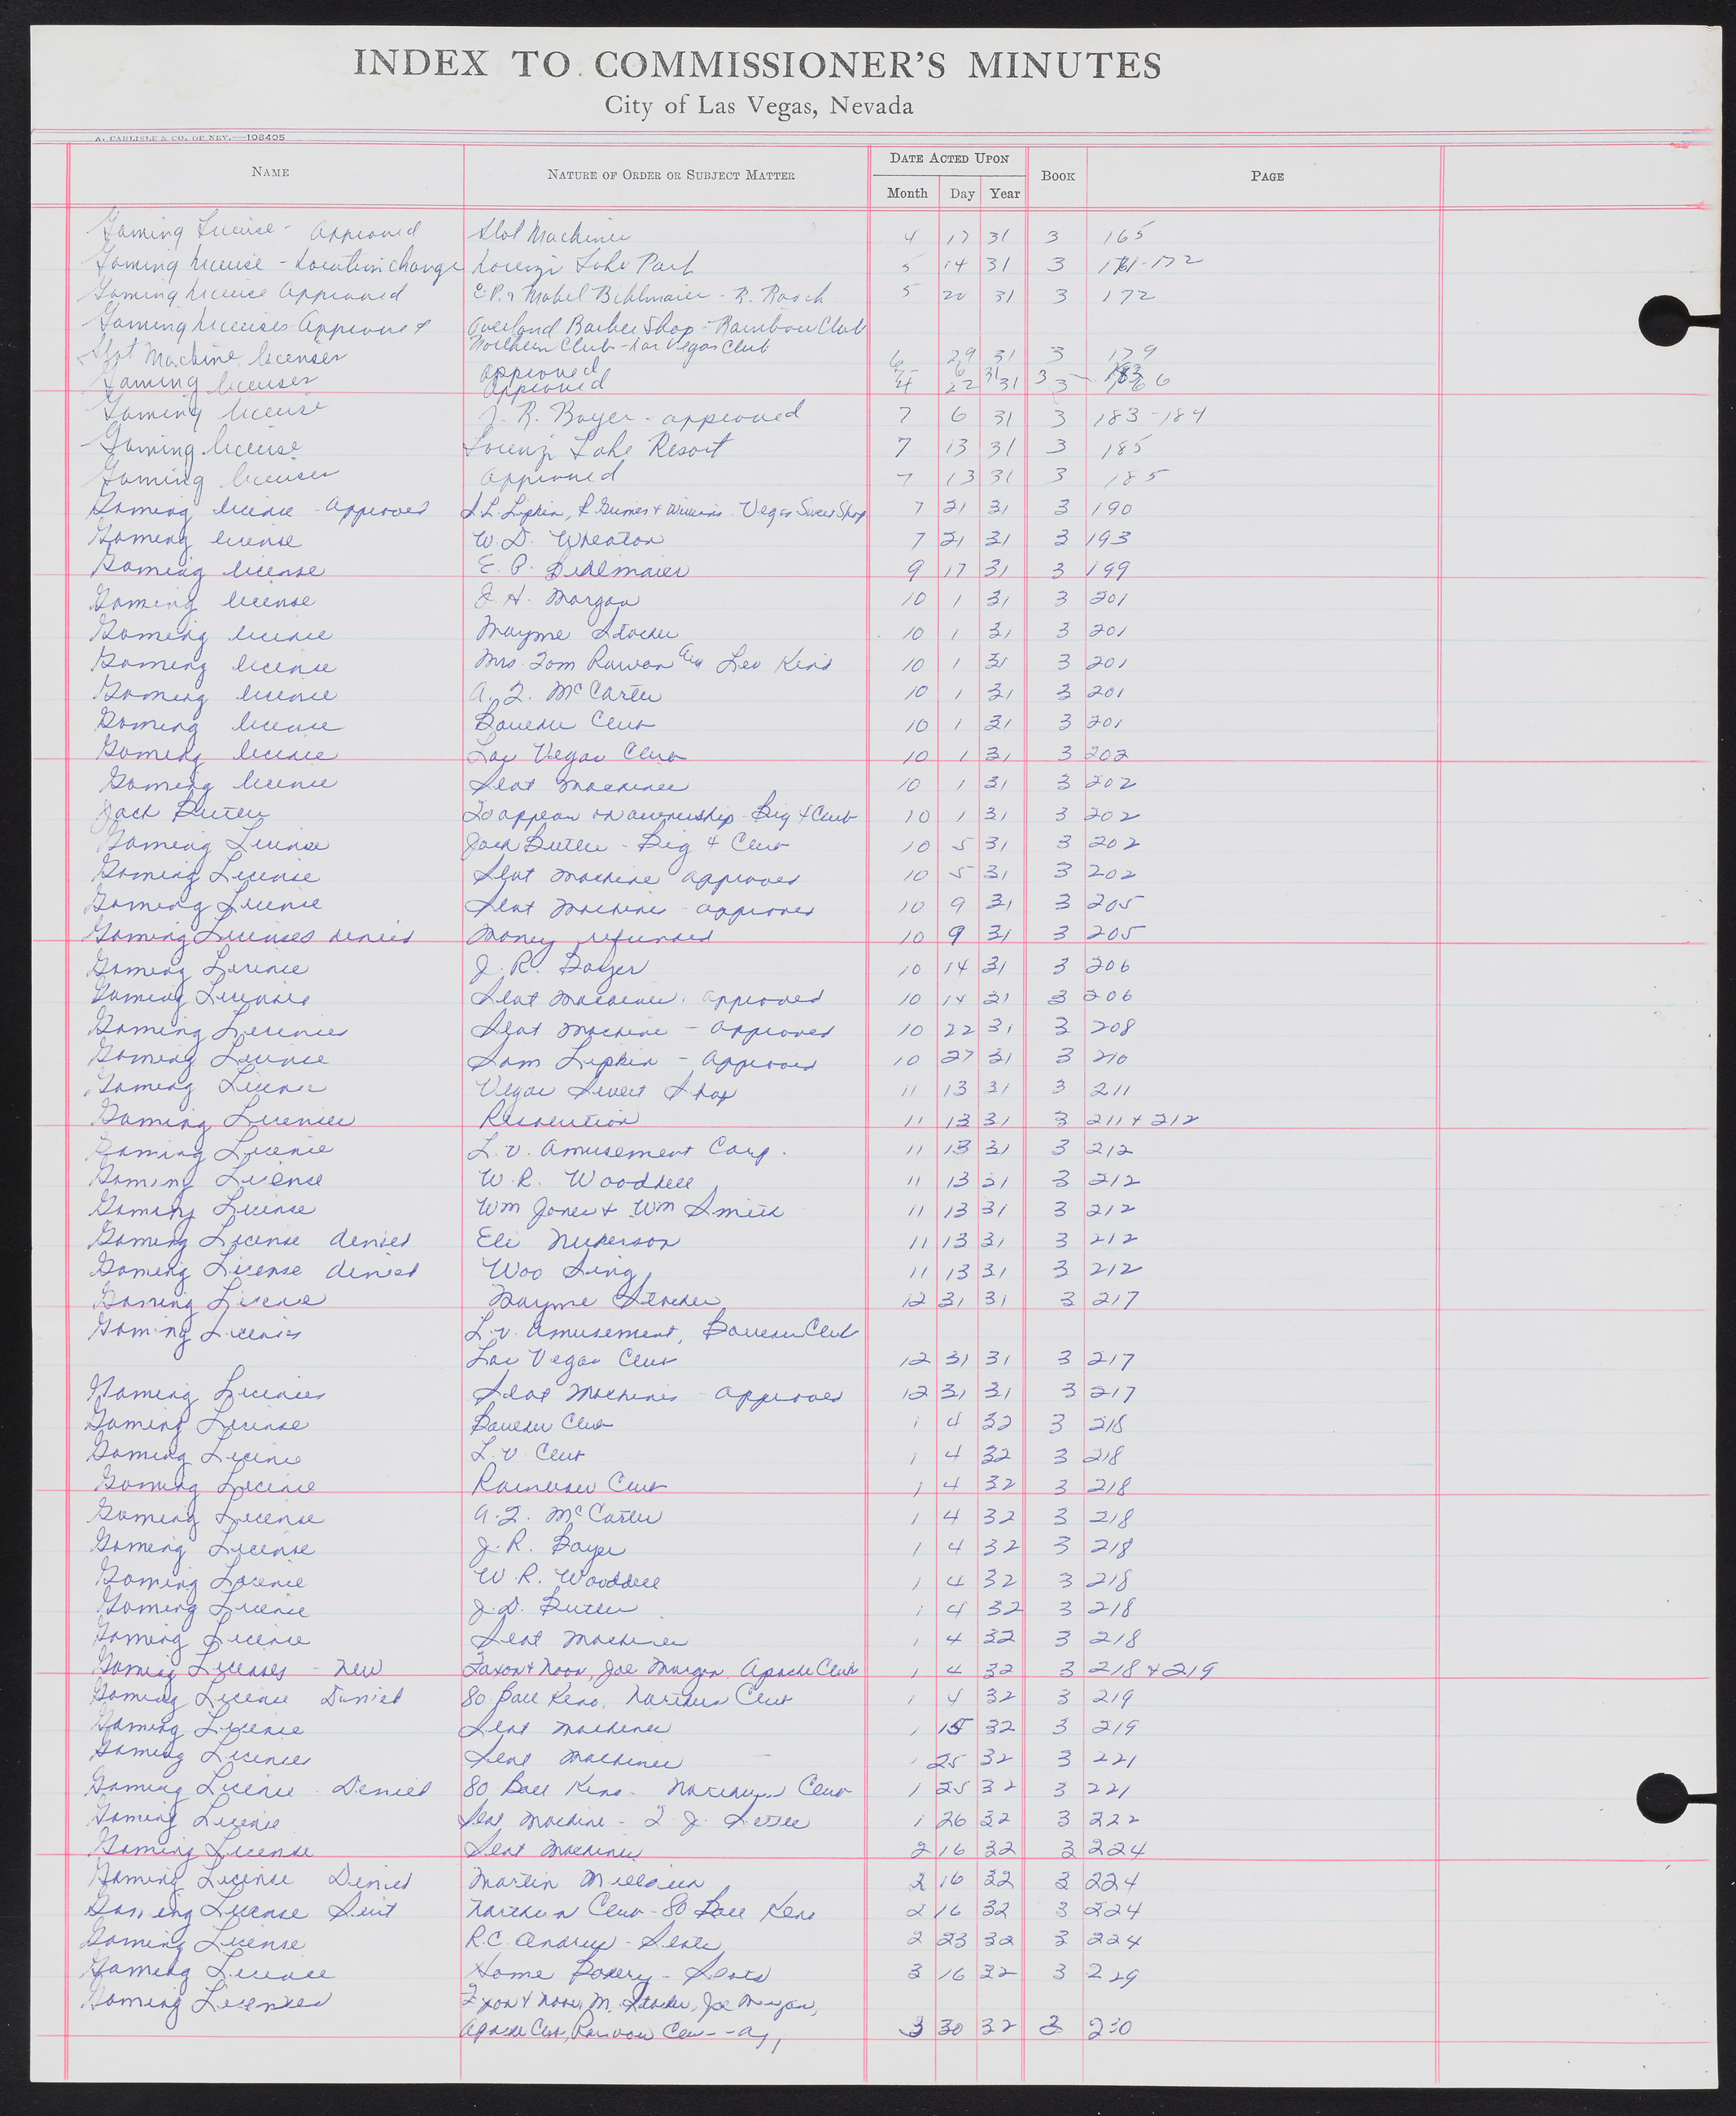 INDEX TO COMMISSIONER'S MINUTES
City of Las Vegas, Nevada
A. CARLISLE & CO. OF NEV.—108405
NAME NATURE OF ORDER OR SUBJECT MATTER DATE ACTED UPON Month Day Year BOOK PAGE
Gaming License - Approved Slot Machines 4 17 31 3 165
Gaming License - Location change Lorenzi Lake Park 5 14 31 3 171-172
Gaming License Approved E.P. & Mabel Bihlmaier - R. Rasch 5 20 31 3 172
Gaming Licenses Approved Overland Barber Shop - Rainbow Club
Northern Club - Las Vegas Club
Slot Machine licenses approved 6 29 31 3 179
Gaming licenses Approved 4 22 31 3
Gaming license J. R. Boyer - approved 7 6 31 3 183-184
Gaming license Lorenzi Lake Resort 7 13 31 3 185
Gaming licenses approved 7 13 31 3 185
Gaming license - Approved S.L. Lipkin, Vegas Sweet Shop 7 21 31 3 190
Gaming license W. D. Wheaton 7 21 31 3 193
Gaming license E. P. Bihlmaier 9 17 31 3 199
Gaming license J. H. Morgan 10 1 31 3 201
Gaming license Mayme Stocker 10 1 31 3 201
Gaming license Mrs. Tom Rowan Leo Keno 10 1 31 3 201
Gaming license A. F. McCarter 10 1 31 3 201
Gaming license Boulder Club 10 1 31 3 201
Gaming license Las Vegas Club 10 1 31 3 202
Gaming license Slot machines 10 1 31 3 202
Jack Butler To appear on ownership - Big 4 Club 10 1 31 3 202
Gaming License Jack Butler - Big 4 Club 10 5 31 3 202
Gaming License Slot machine approved 10 5 31 3 202
Gaming License Slot machines - approved 10 9 31 3 205
Gaming Licenses denied Money refunded 10 9 31 3 205
Gaming License J. R. Boyer 10 14 31 3 206
Gaming Licenses Slot machines. approved 10 14 31 3 206
Gaming Licenses Slot machine - approved 10 22 31 3 208
Gaming License Sam Lipkin - Approved 10 27 31 3 210
Gaming License Vegas Sweet Shop 11 13 31 3 211
Gaming Licenses Resolution 11 13 31 3 211 & 212
Gaming License L.V. Amusement Corp. 11 13 31 3 212
Gaming License W. R. Wooddell 11 13 31 3 212
Gaming License Wm Jones & Wm Smith 11 13 31 3 212
Gaming License denied Eli Nickerson 11 13 31 3 212
Gaming License denied Woo Sing 11 13 31 3 212
Gaming License Mayme Stocker 12 31 31 3 217
Gaming Licenses L.V. Amusement, Boulder Club
Las Vegas Club 12 31 31 3 217
Gaming Licenses Slot Machines - approved 12 31 31 3 217
Gaming License Boulder Club 1 4 32 3 218
Gaming License L.V. Club 1 4 32 3 218
Gaming License Rainbow Club 1 4 32 3 218
Gaming License A. F. McCarter 1 4 32 3 218
Gaming License J. R. Boyer 1 4 32 3 218
Gaming License W. R. Wooddell 1 4 32 3 218
Gaming License J. D. Butler 1 4 32 3 218
Gaming License Slot machines 1 4 32 3 218
Gaming Licenses - New Faxon & Noon, Joe Morgan, Apache Club 1 4 32 3 218 & 219
Gaming License Denied 80 Ball Keno, Northern Club 1 4 32 3 219
Gaming License Slot machines 1 15 32 3 219
Gaming Licenses Slot machines 1 25 32 3 221
Gaming License - Denied 80 Ball Keno - Northern Club 1 25 32 3 221
Gaming License Slot Machine - 1 26 32 3 222
Gaming License Slot machines 2 16 32 3 224
Gaming License Denied Martin 2 16 32 3 224
Gaming License Suit Northern Club - 80 Ball Keno 2 16 32 3 224
Gaming License R.C. Andrus - Slots 2 23 32 3 224
Gaming License Home Bakery - Slots 3 16 32 3 229
Gaming Licenses Faxon & Noon, M. Stocker, Joe Morgan,
Apache Club, Rainbow Club 3 30 32 3 230